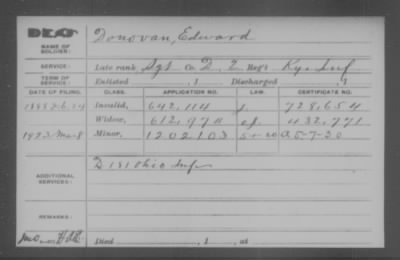 DEAD
NAME OF SOLDIER: Donovan, Edward
SERVICE: Late rank, Sgt Co. D, 2 Reg't Ky. Inf
TERM OF SERVICE: Enlisted , 1 Discharged , 1
DATE OF FILING. CLASS. APPLICATION NO. LAW. CERTIFICATE NO.
Invalid, 642,114 728,654
Widow, 612,970 432,771
1923 Mar 8 Minor, 1202103 A 5-7-20
ADDITIONAL SERVICES: D 181 Ohio Inf
REMARKS:
Died , 1 , at